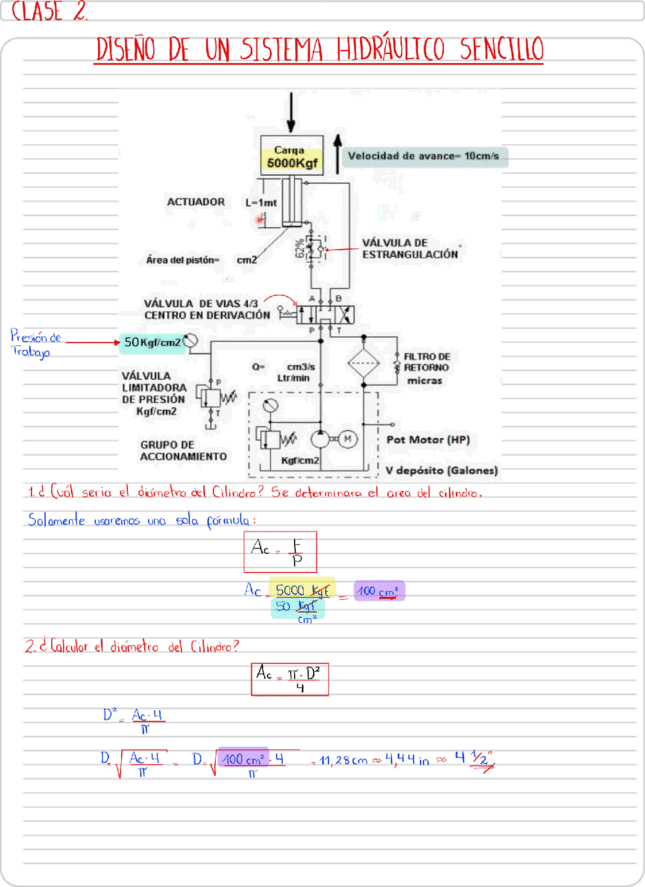 CLASE 2.
DISEÑO DE UN SISTEMA HIDRÁULICO SENCILLO
Carga
5000Kgf
Velocidad de avance= 10cm/s
ACTUADOR L=1mt
62%
VÁLVULA DE
ESTRANGULACIÓN
Área del pistón= cm2
A B
VÁLVULA DE VIAS 4/3
CENTRO EN DERIVACIÓN
P T
Presión de
Trabajo
50 Kgf/cm2
Q= cm3/s
Ltr/min
FILTRO DE
RETORNO
micras
VÁLVULA
LIMITADORA
DE PRESIÓN
Kgf/cm2
P
T
M
Pot Motor (HP)
GRUPO DE
ACCIONAMIENTO
Kgf/cm2
V depósito (Galones)
1. ¿Cuál seria el diámetro del Cilindro? Se determinara el area del cilindro.
Solamente usaremos una sola fórmula:
Ac = F
P
Ac = 5000 Kgf = 100 cm²
50 Kgf
cm²
2. ¿Calcular el diámetro del Cilindro?
Ac = π · D²
4
D² = Ac · 4
π
D = √ Ac · 4 = D = √ 100 cm² · 4 = 11,28 cm ≈ 4,44 in ≈ 4 1/2"
π π